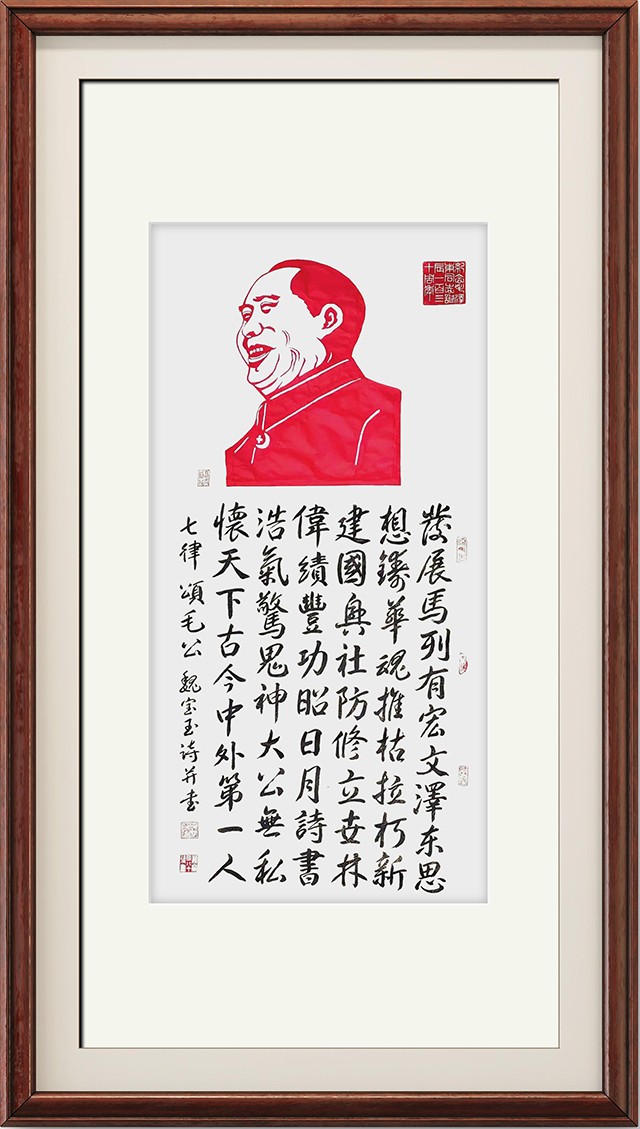 紀念毛澤
東同志誕
辰一百三
十周年
發展馬列有宏文澤东思
想鑄華魂摧枯拉朽新
建國興社防修立世林
偉績豐功昭日月詩書
浩氣驚鬼神大公無私
懷天下古今中外第一人
七律 頌毛公 魏宝玉诗并书